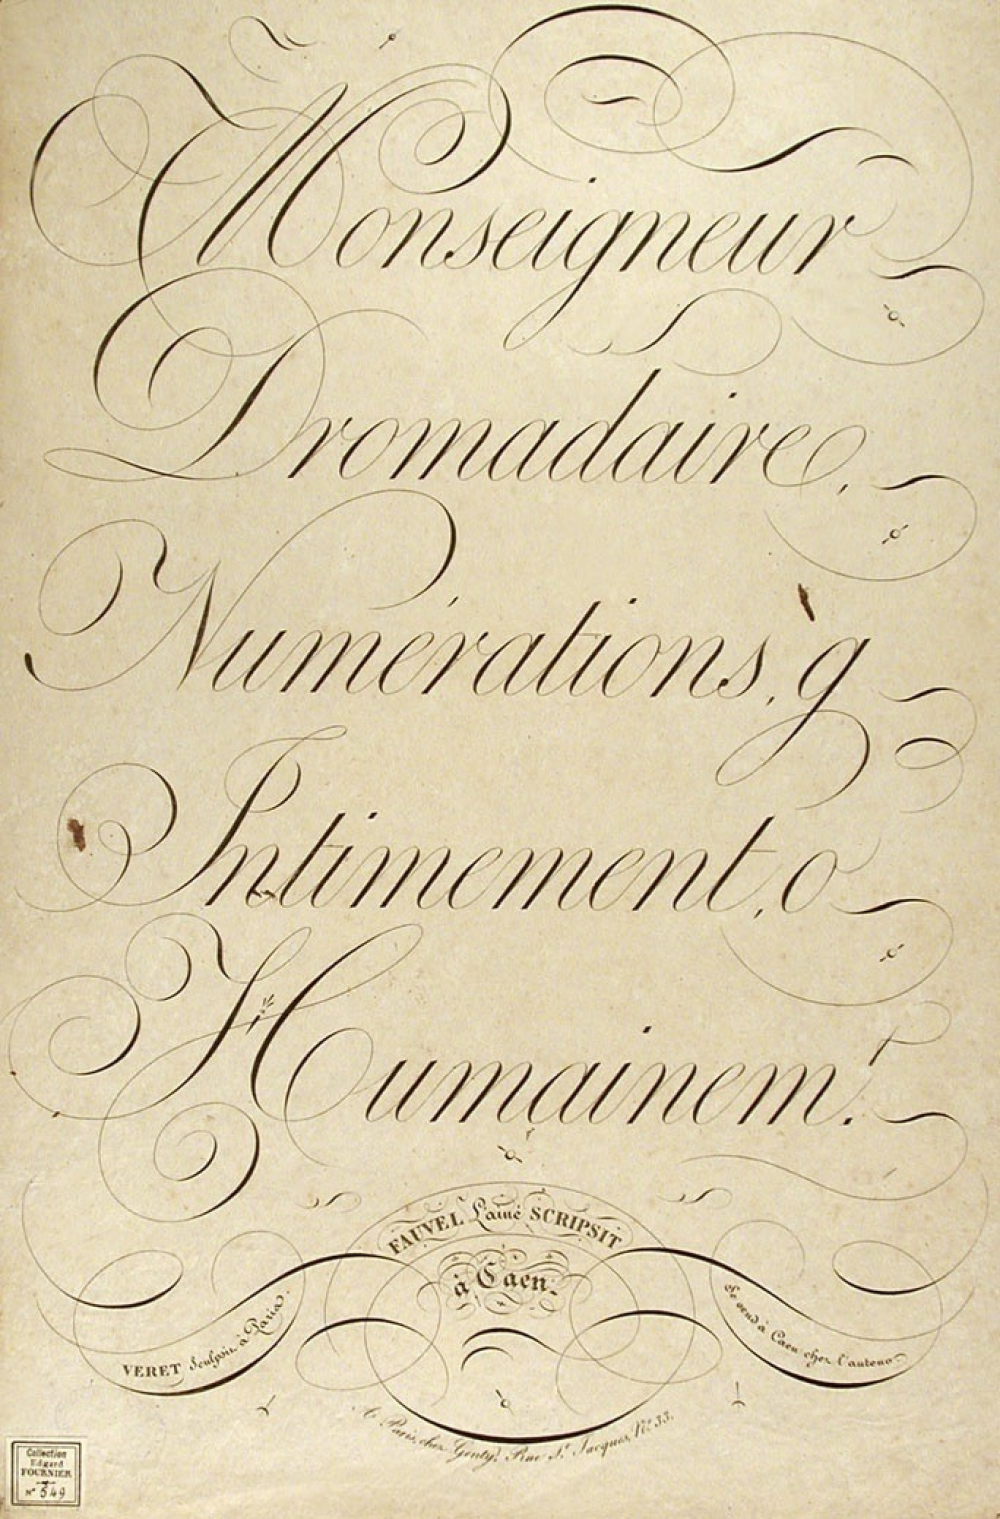 Monseigneur
Dromadaire,
Numérations, g
Intimement, o
Humainem.t
FAUVEL l'ainé SCRIPSIT
à Caen.
VERET Sculpsit à Paris.
Se vend à Caen chez l'auteur
A Paris, chez Genty, Rue St. Jacques, No. 33.
Collection
Edgard
FOURNIER
No 549